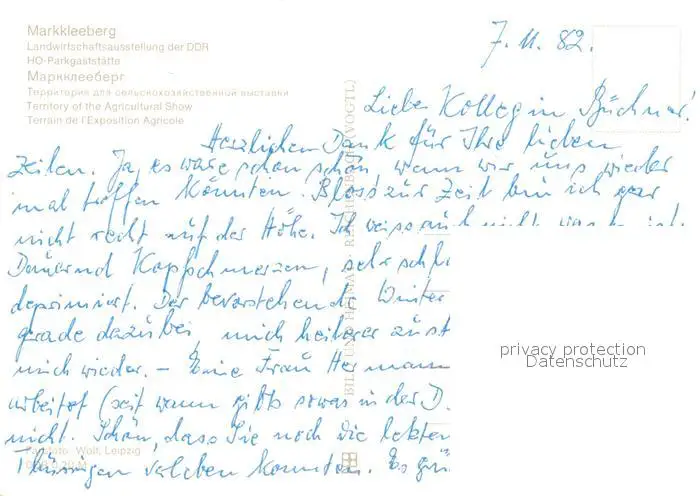 Markkleeberg
Landwirtschaftsausstellung der DDR
HO-Parkgaststätte
Марkклееберг
Территория для сельскохозяйственной выставки
Territory of the Agricultural Show
Terrain de l'Exposition Agricole
7. 11. 82.
Liebe Kollegin Büchner!
Herzlichen Dank für Ihre lieben
Zeilen. Ja, es wäre schon schön, wenn wir uns wieder
mal treffen könnten. Bloss zur Zeit bin ich gar
nicht recht auf der Höhe. Ich weiss auch nicht was es ist.
Dauernd Kopfschmerzen, sehr
deprimiert. Der bevorstehende Winter
gerade dazu bei, mich heiterer
mich wieder. - Eine Frau Hermann
arbeitet (seit wann gibts sowas in der D.
nicht. Schön, dass Sie noch die letzten
konnten. Es
Wolf, Leipzig
BILD UND HEIMAT REICHENBACH (VOGTL)
privacy protection
Datenschutz